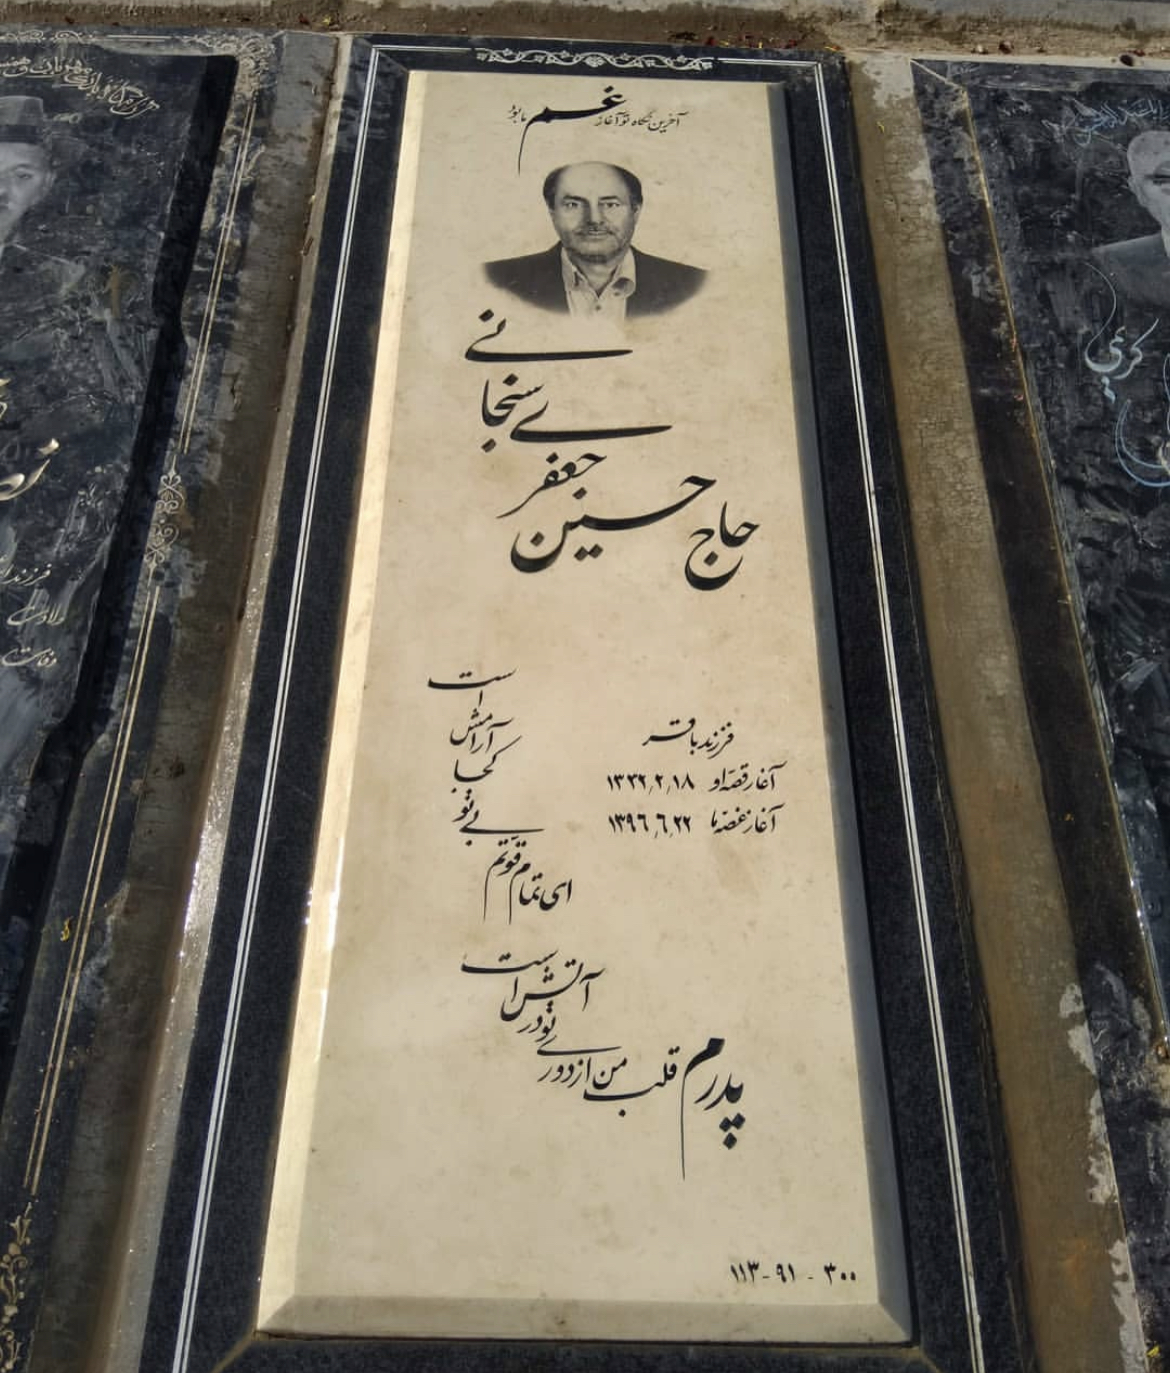 آخرین نگاه تو آغاز غم ما بود
حاج حسین جعفری سنجانی
فرزند باقر
آغاز قصّه او ۱۳۳۲٫۲٫۱۸
آغاز غصّه ما ۱۳۹۶٫۶٫۲۲
ای تمام قوتم بی تو کجا آرامش است
پدرم قلب من از دوری تو در آتش است
۱۱۳-۹۱ - ۳۰۰
کریمی
فرزند
ولادت
وفات